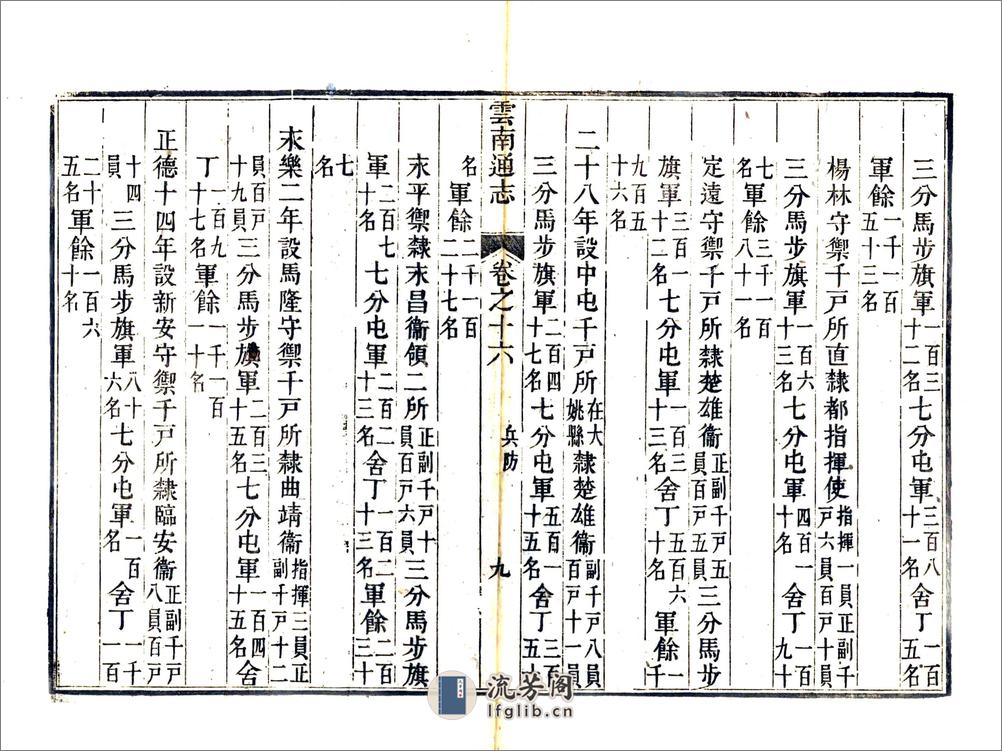 三分馬步旗軍一百三十二名七分屯軍三百八十一名舍丁一百五名
軍餘一千一百五十三名
楊林守禦千戸所直隸都指揮使指揮一員正副千戸六員百戸十員
三分馬步旗軍一百六十三名七分屯軍四百一十名舍丁一百九十
七名軍餘三千一百八十一名
定遠守禦千戸所隸楚雄衞正副千戸五員百戸五員三分馬步
旗軍三百一十二名七分屯軍一百五十三名舍丁五百六十名軍餘一千
九百五十六名
二十八年設中屯千戸所在大姚縣隸楚雄衞副千戸八員百戸十一員
三分馬步旗軍二百四十七名七分屯軍五百一十五名舍丁三百五十六
名軍餘二千一百二十七名
雲南通志 卷之十六 兵防 九
永平禦隸永昌衞領二所正副千戸十員百戸六員三分馬步旗
軍二百七十名七分屯軍二百二十三名舍丁一百二十三名軍餘二百三十
七名
永樂二年設馬隆守禦千戸所隸曲靖衞指揮三員正副千戸十二
員百戸十九員三分馬步旗軍二百三十五名七分屯軍一百四十五名舍
丁一百九十七名軍餘一千一百一十名
正德十四年設新安守禦千戸所隸臨安衞正副千戸八員百戸
十四員三分馬步旗軍八十六名七分屯軍一百名舍丁一千一百
二十五名軍餘一百六十名
流芳閣
lfglib.cn